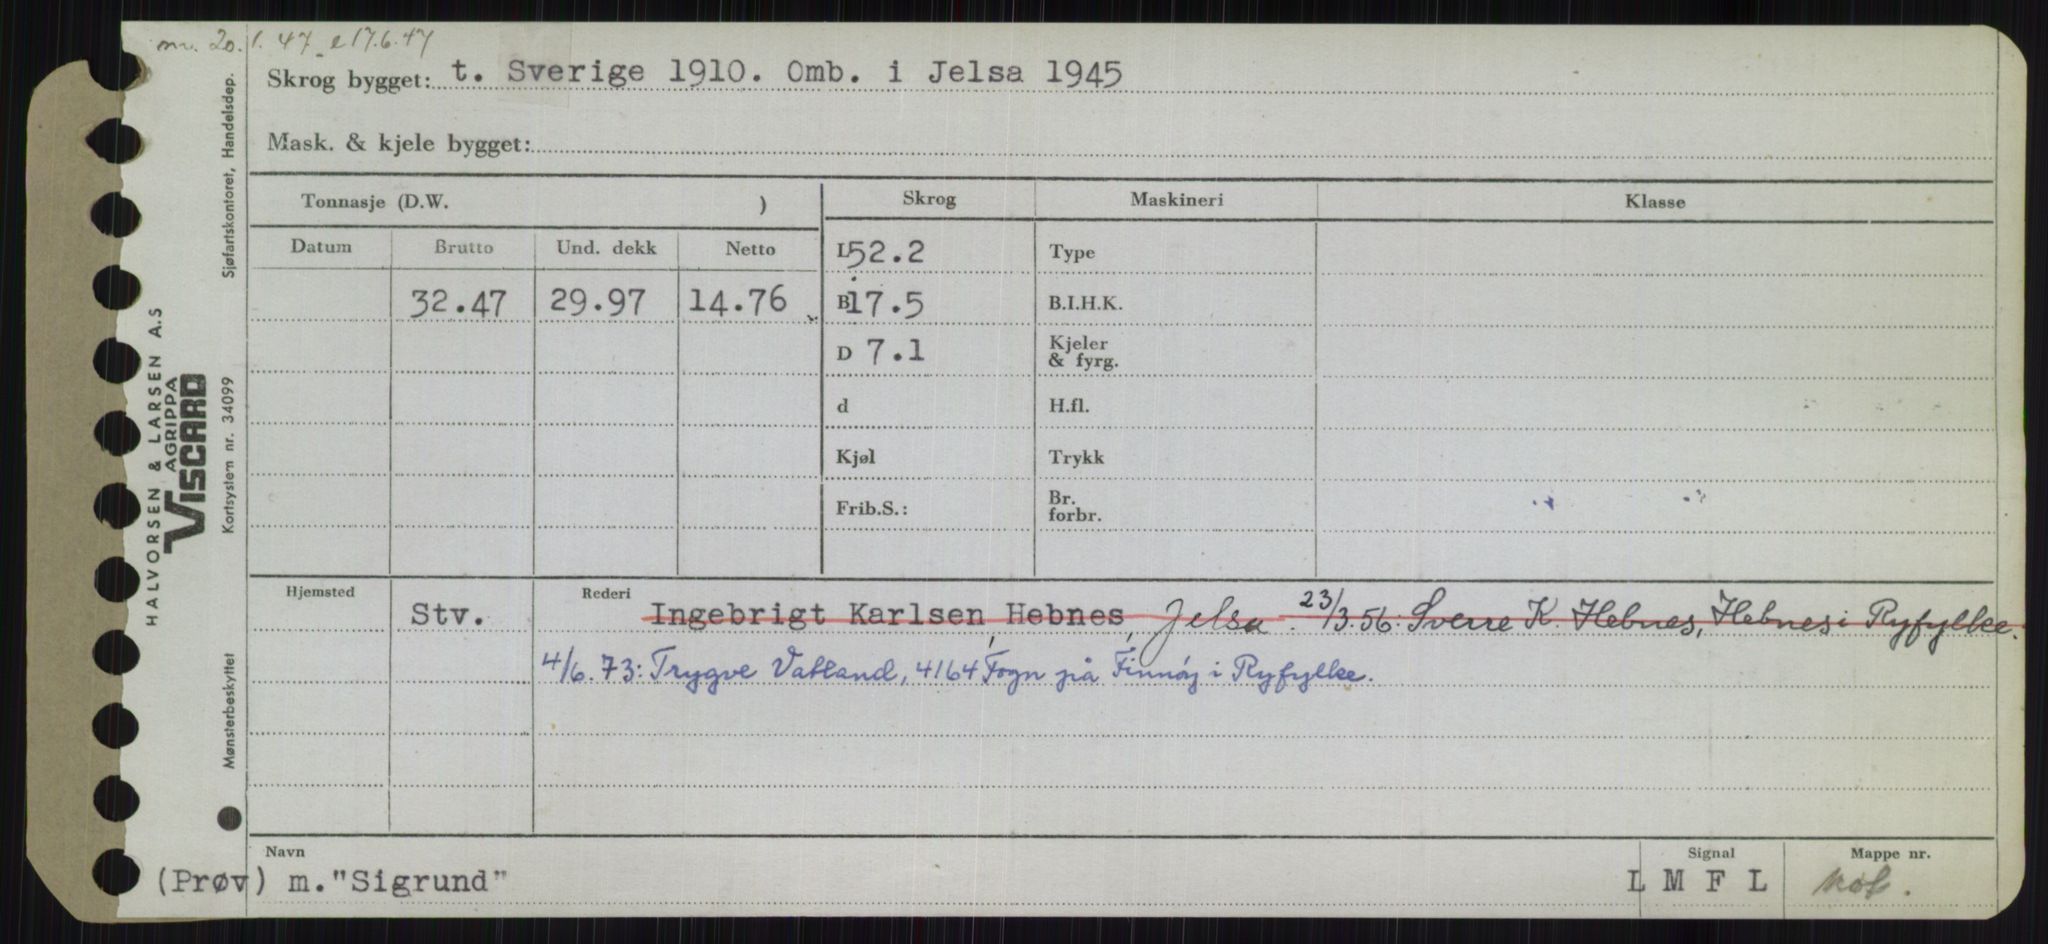 nr. 20.1.47 e 17.6.47
Skrog bygget: t. Sverige 1910. Omb. i Jelsa 1945
Mask. & kjele bygget:
Tonnasje (D.W. ) Skrog Maskineri Klasse
Datum Brutto Und. dekk Netto L 52.2 Type
32.47 29.97 14.76 B 17.5 B.I.H.K.
D 7.1 Kjeler & fyrg.
d H.fl.
Kjøl Trykk
Frib.S.: Br. forbr.
Hjemsted Stv. Rederi Ingebrigt Karlsen Hebnes, Jelsa. 23/3.56: Sverre K. Hebnes, Hebnes i Ryfylke.
4/6.73: Trygve Vatland, 4164 Fogn på Finnøy i Ryfylke.
Navn Signal Mappe nr.
(Prøv) m."Sigrund" L M F L
Sjøfartskontoret, Handelsdep.
HALVORSEN & LARSEN A.S
AGRIPPA
VISCARD
Kortsystem nr. 34099
Mønsterbeskyttet